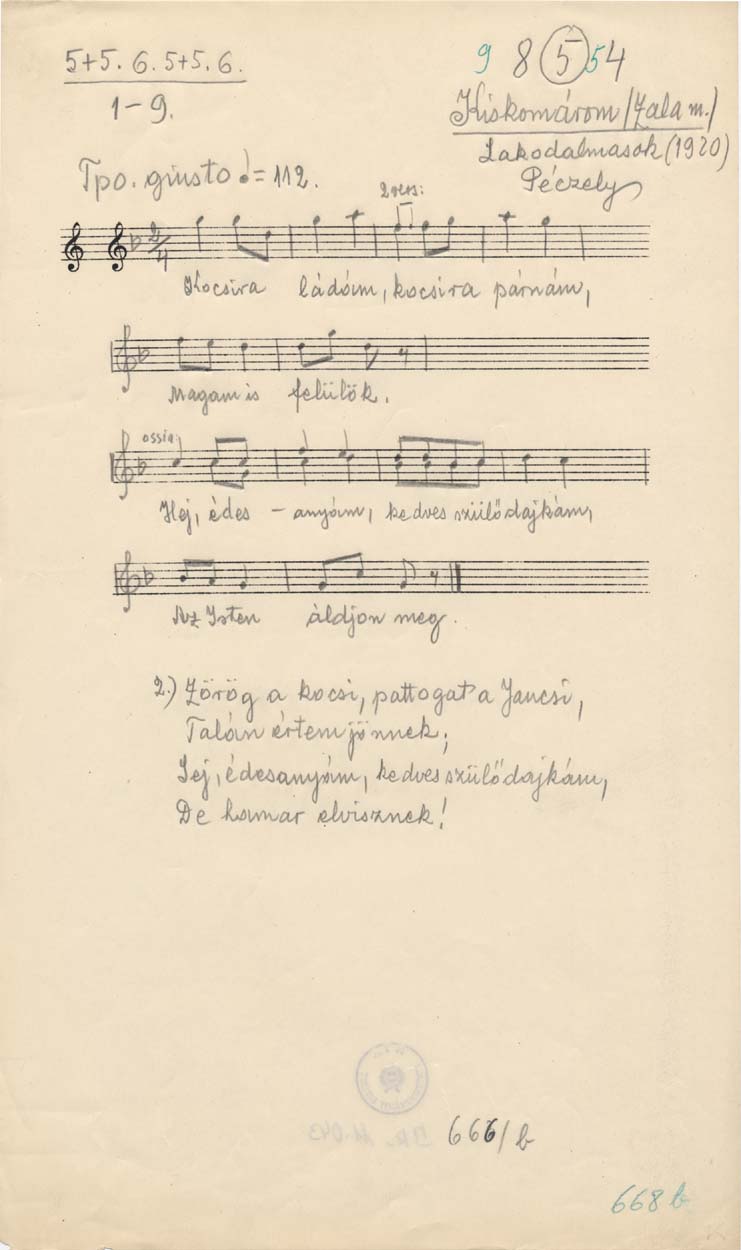 5+5. 6. 5+5. 6.
1-9.
9 8 5 5 4
Kiskomárom (Zala m.)
Lakodalmasok (1920)
Péczely
Tpo. giusto ♩= 112.
2 vers:
2/4
Kocsira ládám, kocsira párnám,
Magam is felülök.
ossia:
Hej, édes - anyám, kedves szülődajkám,
Az Isten áldjon meg.
2.) Zörög a kocsi, pattogat a Jancsi,
Talán értem jönnek;
Jej, édesanyám, kedves szülődajkám,
De hamar elvisznek!
666/b
668 b